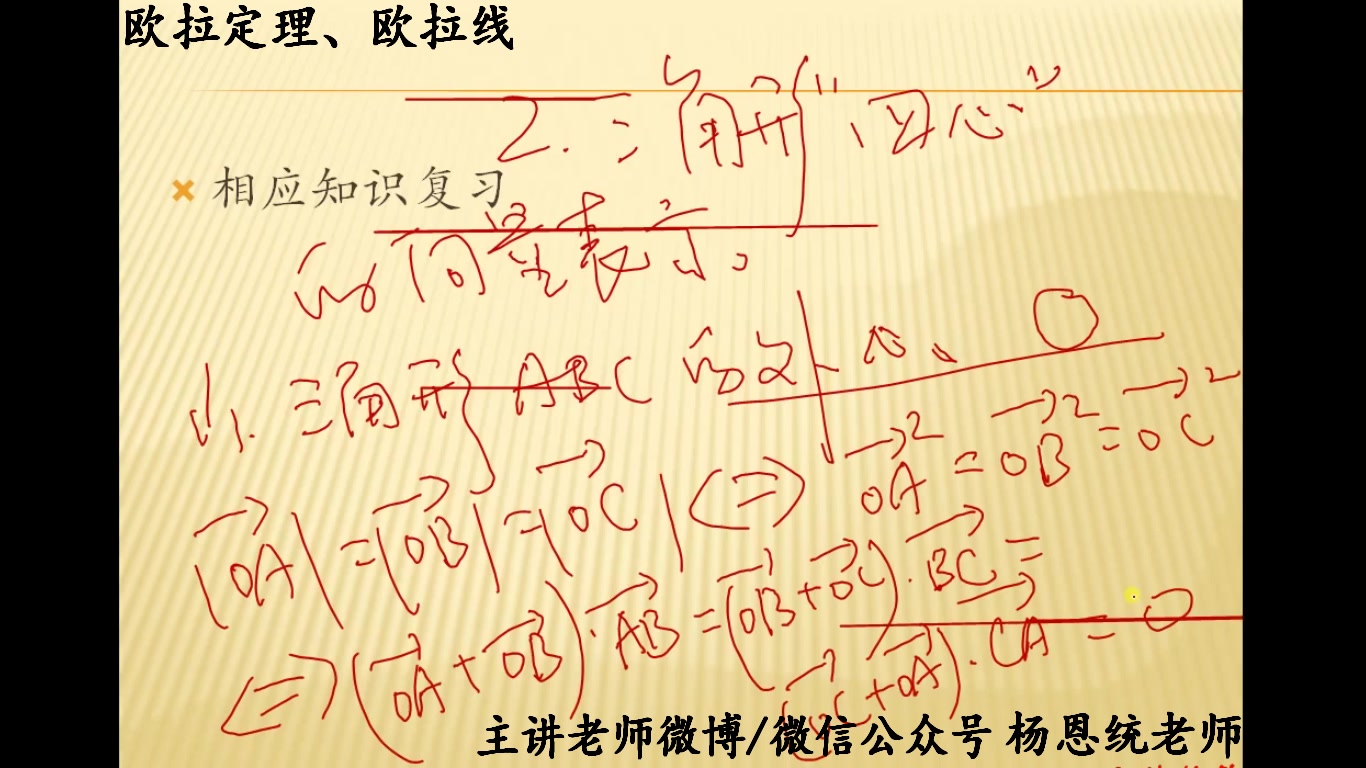 欧拉定理、欧拉线
2. 三角形"四心"
相应知识复习
的向量表示。
(1). 三角形ABC的外心、O
|OA|=|OB|=|OC| <=> OA²=OB²=OC²
<=> (OA+OB)·AB=(OB+OC)·BC=
(OC+OA)·CA=0
主讲老师微博/微信公众号 杨恩统老师